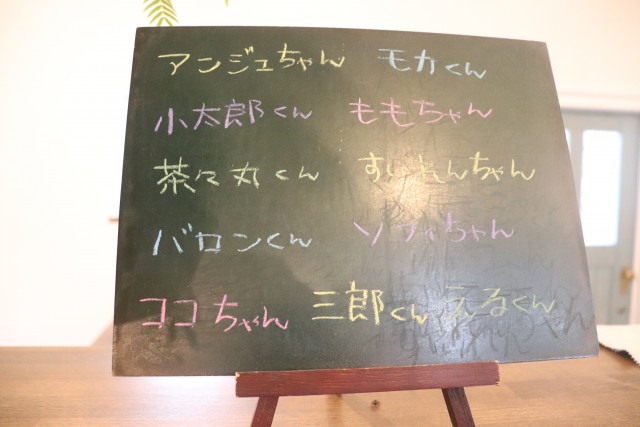 アンジュちゃん モカくん
小太郎くん ももちゃん
茶々丸くん すいれんちゃん
バロンくん ソフィちゃん
ココちゃん 三郎くん えるくん